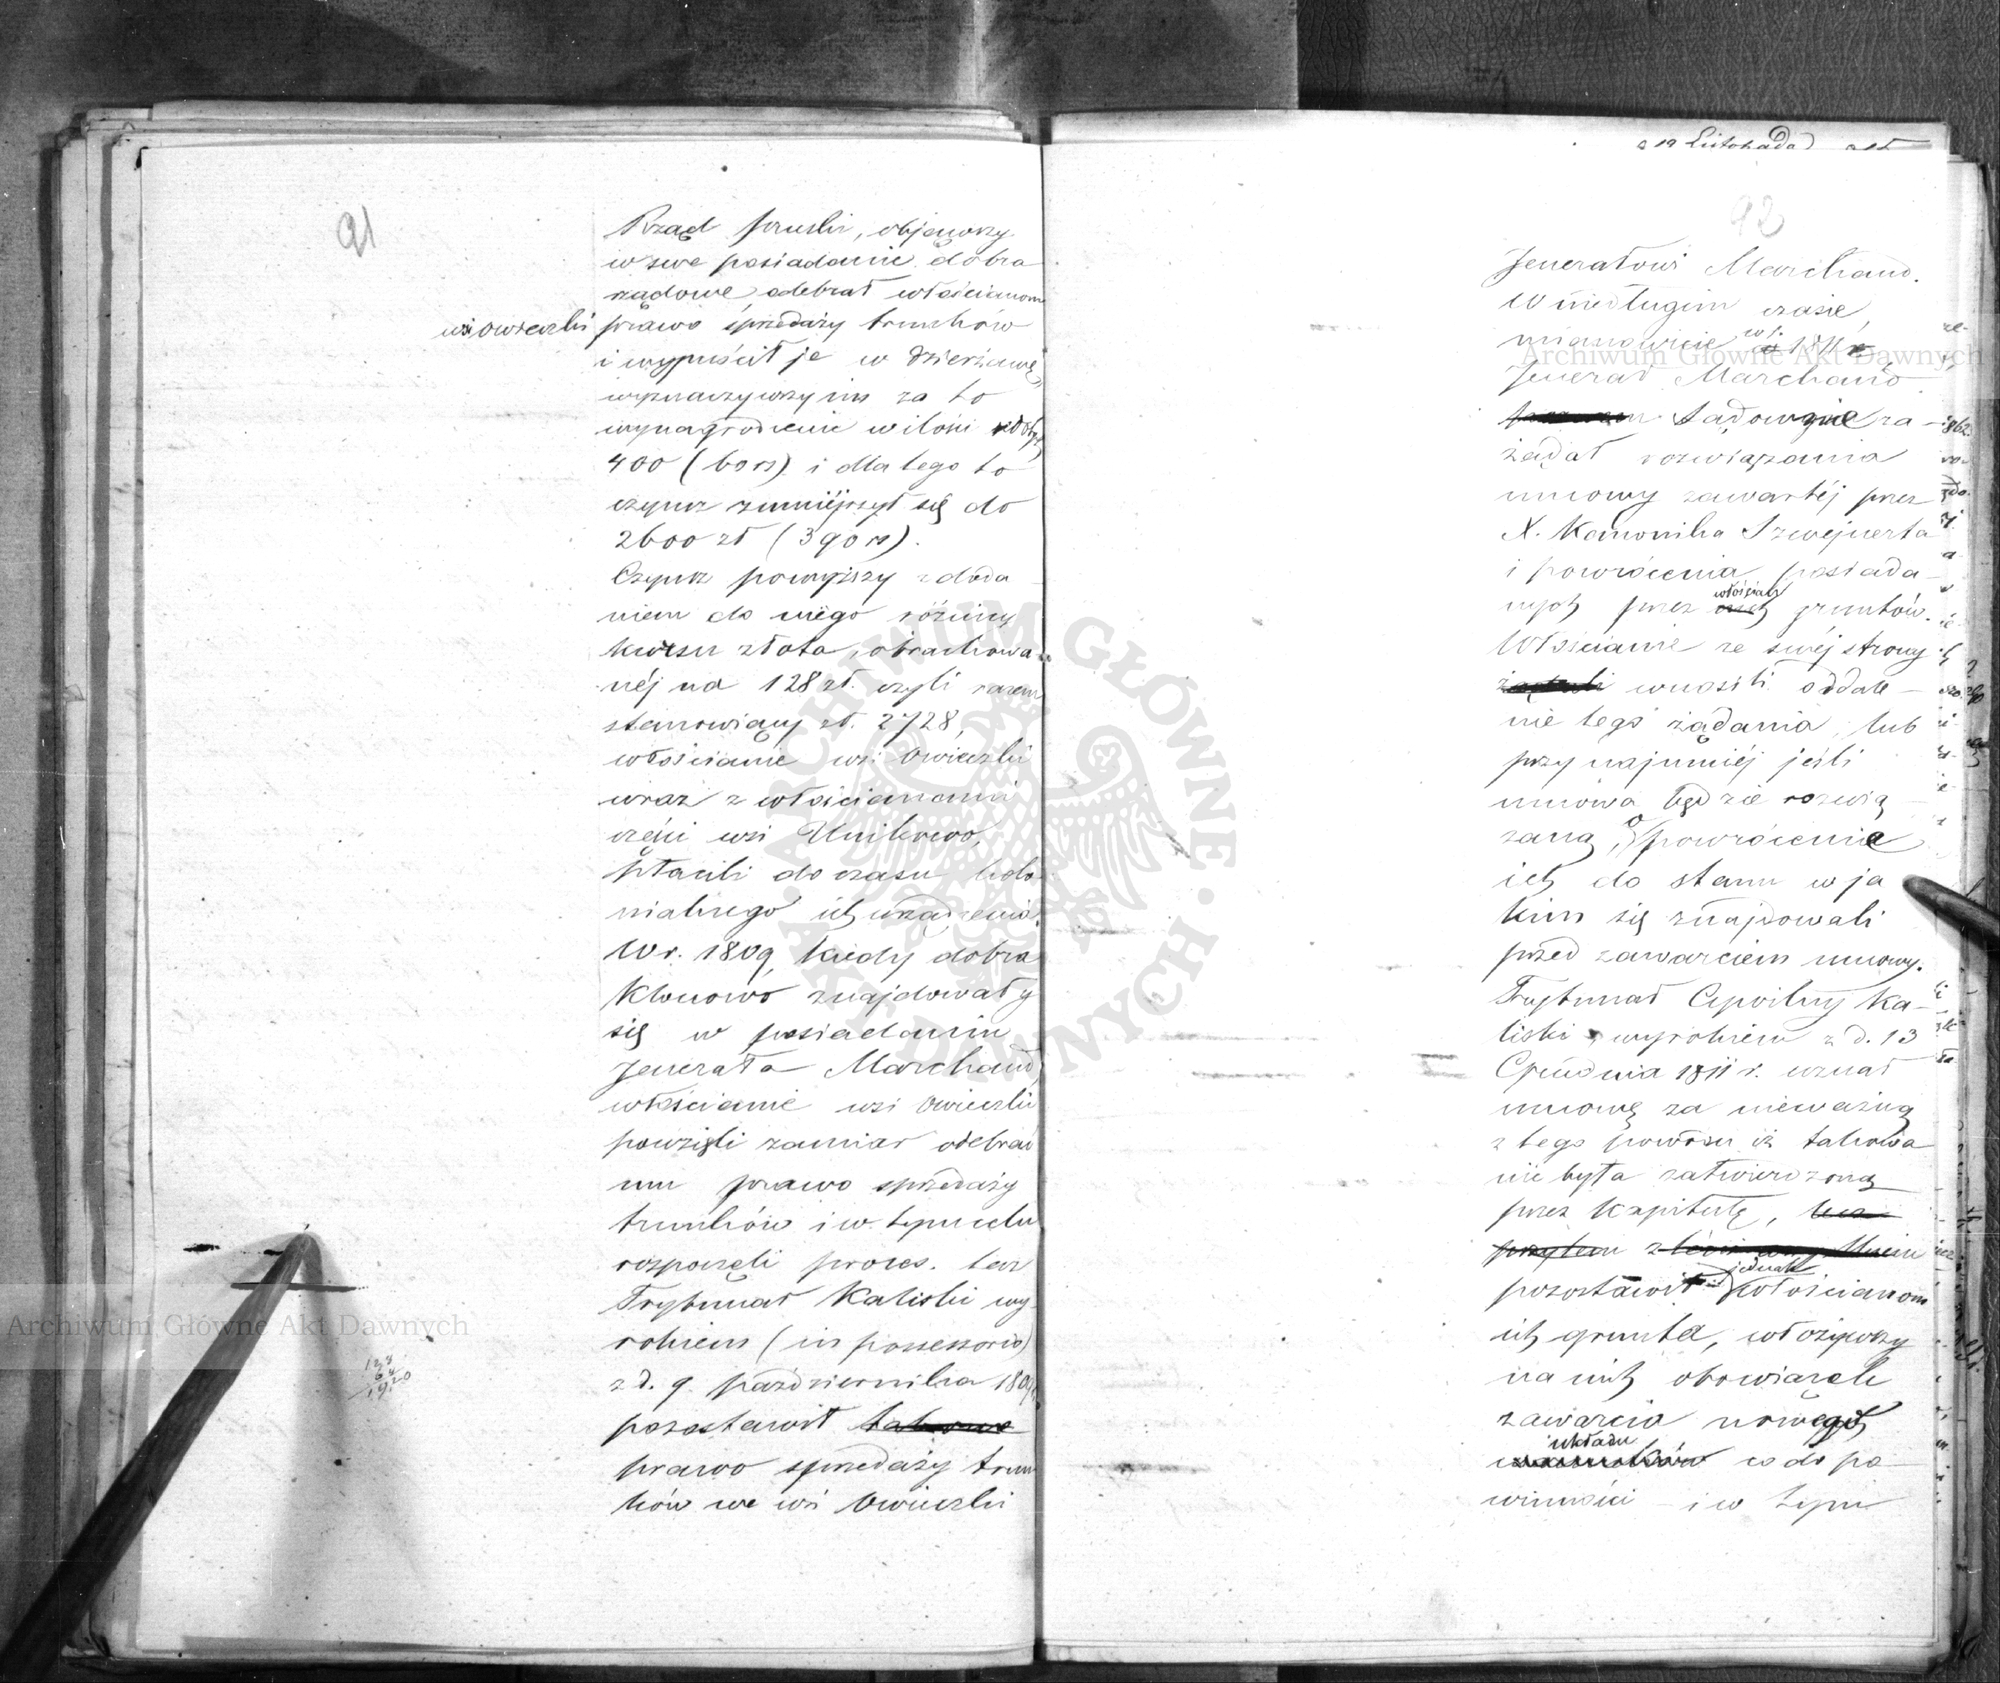 91
Rząd pruski, objąwszy
w swe posiadanie dobra
rządowe odebrał włościanom
wsi Owieczki prawo sprzedaży trunków
i wypuścił je w dzierżawę,
wyznaczywszy im za to
wynagrodzenie w ilości
400 (60 rs) i dla tego to
czynsz zmniejszył się do
2600 zł (390 rs).
Czynsz powyższy z doda
niem do niego różnicy
kursu złota, obrachowa
néj na 128 zł. czyli razem
stanowiący zł. 2728,
włościanie wsi Owieczki
wraz z włościanami
części wsi Unikowo,
płacili do czasu kolo
nialnego ich urządzenia.
W r. 1809, kiedy dobra
Klonowo znajdowały
się w posiadaniu
Jenerała Marchand,
włościanie wsi Owieczki
powzięli zamiar odebrać
mu prawo sprzedaży
trunków i w tym celu
rozpoczęli proces. lecz
Trybunał Kaliski wy
rokiem (in possessorio)
z d. 9 października 1809
pozostawił
prawo sprzedaży trun
ków we wsi Owieczki
138
64
1920
19 Listopada
92
Jenerałowi Marchand.
W niedługim czasie,
mianowicie w r. 1811
Jenerał Marchand
sądownie za-
żądał rozwiązania
umowy zawartéj przez
X. Kanonika Szwejnerta
i powrócenia posiada-
nych przez włościan gruntów.
Włościanie ze swéj strony
żądali wnosili oddale-
nie tego żądania, lub
przynajmniéj jeśli
umowa będzie rozwią-
zaną, o powrócenie
ich do stanu w ja
kim się znajdowali
przed zawarciem umowy.
Trybunał Cywilny Ka-
liski wyrokiem z d. 13
Grudnia 1811 r. uznał
umowę za nieważną
z tego powodu iż takowa
nie była zatwierdzoną
przez Kapitułę, lecz
przytem
pozostawił jednak włościanom
ich grunta, włożywszy
na nich obowiązek
zawarcia nowego
układu co do po-
winności i w tym